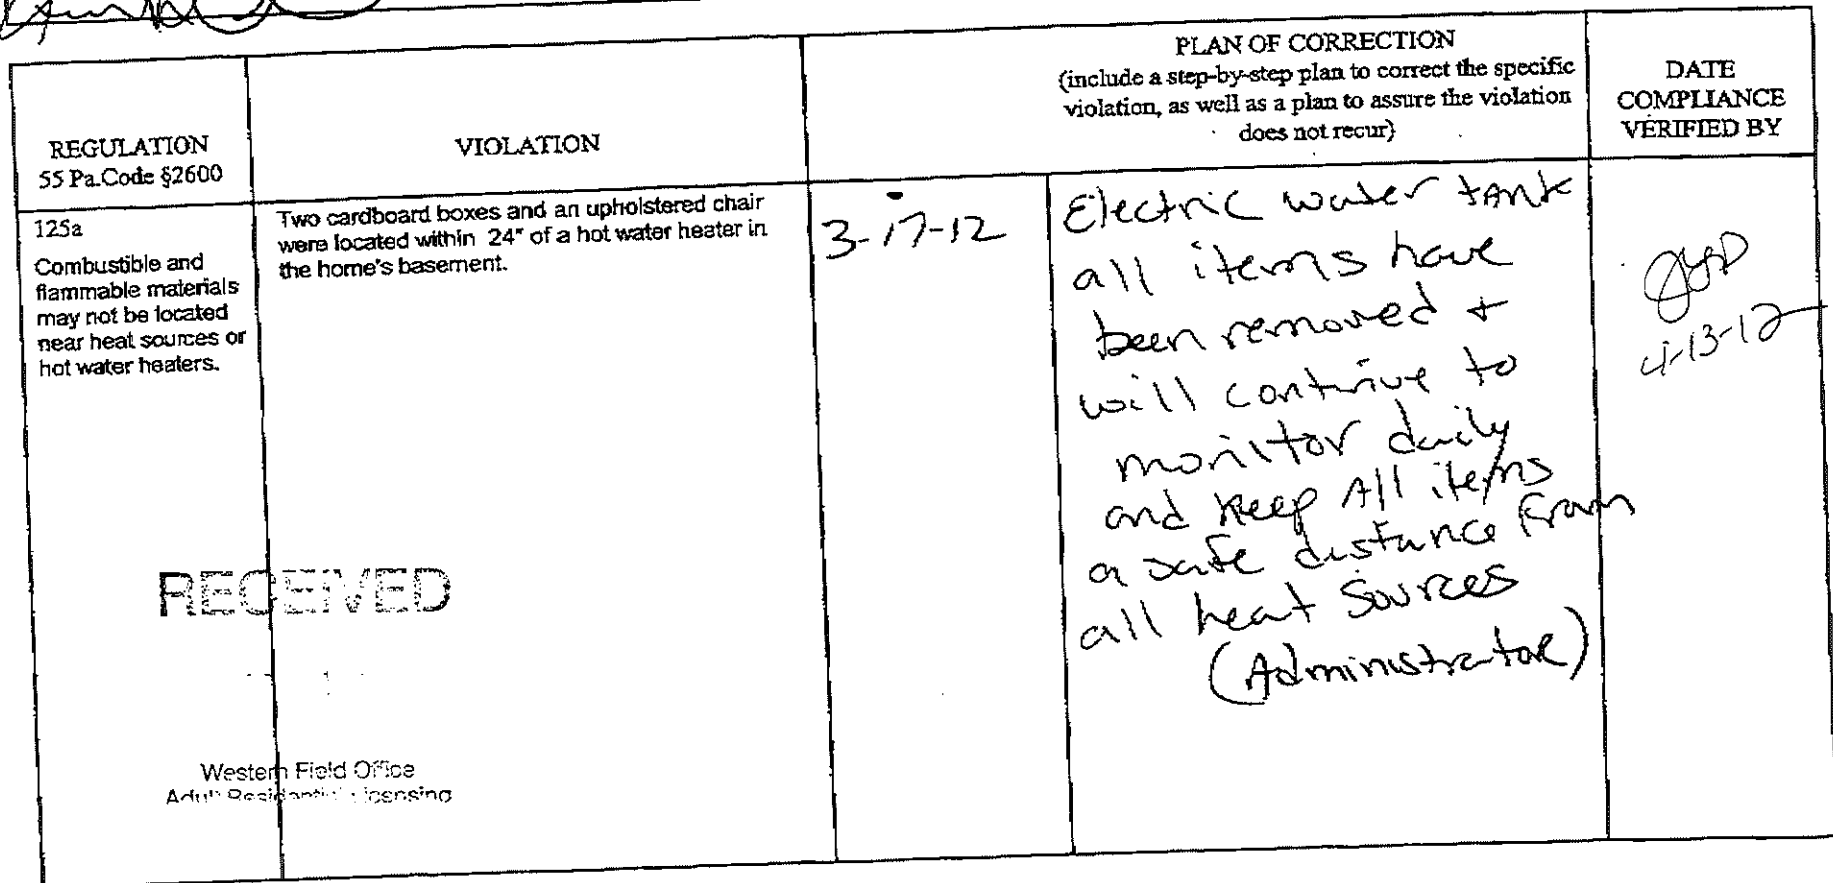 PLAN OF CORRECTION
(include a step-by-step plan to correct the specific
violation, as well as a plan to assure the violation
does not recur)
DATE
COMPLIANCE
VERIFIED BY
REGULATION
55 Pa.Code §2600
VIOLATION
125a
Combustible and
flammable materials
may not be located
near heat sources or
hot water heaters.
Two cardboard boxes and an upholstered chair
were located within 24" of a hot water heater in
the home's basement.
3-17-12
Electric water tank
all items have
been removed +
will continue to
monitor daily
and keep All items
a safe distance from
all heat sources
(Administrator)
4-13-12
RECEIVED
Western Field Office
Adult Residential Licensing